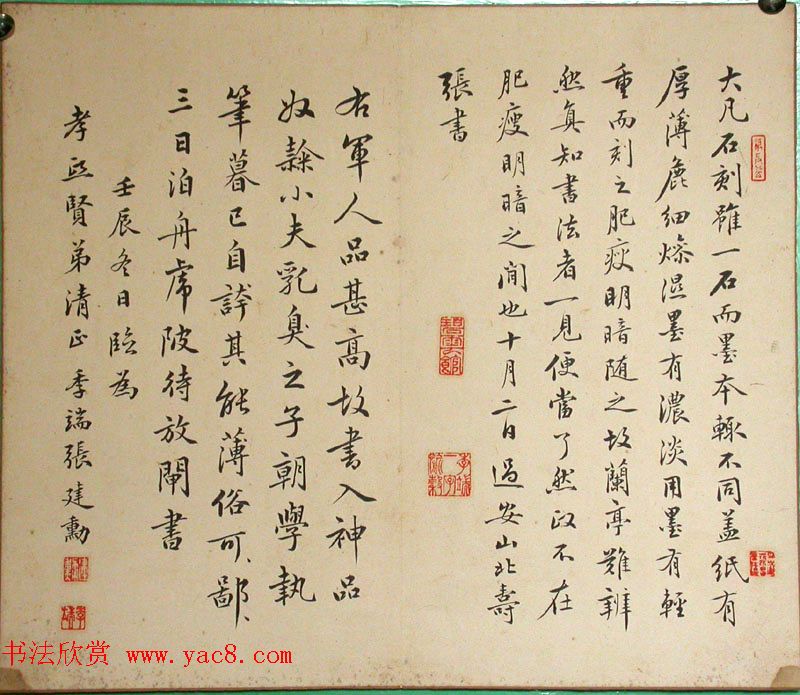 大凡石刻雖一石而墨本輒不同盖紙有
厚薄麁細燥濕墨有濃淡用墨有輕
重而刻之肥瘦明暗随之故蘭亭難辨
然真知書法者一見便當了然政不在
肥瘦明暗之間也十月二日過安山北壽
張書
右軍人品甚高故書入神品
奴隸小夫乳臭之子朝學執
筆暮已自誇其能薄俗可鄙
三日泊舟虎陂待放閘書
壬辰冬日臨為
孝熙賢弟清正季端張建勳
书法欣赏 www.yac8.com